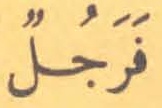 فَرَجُلٌ